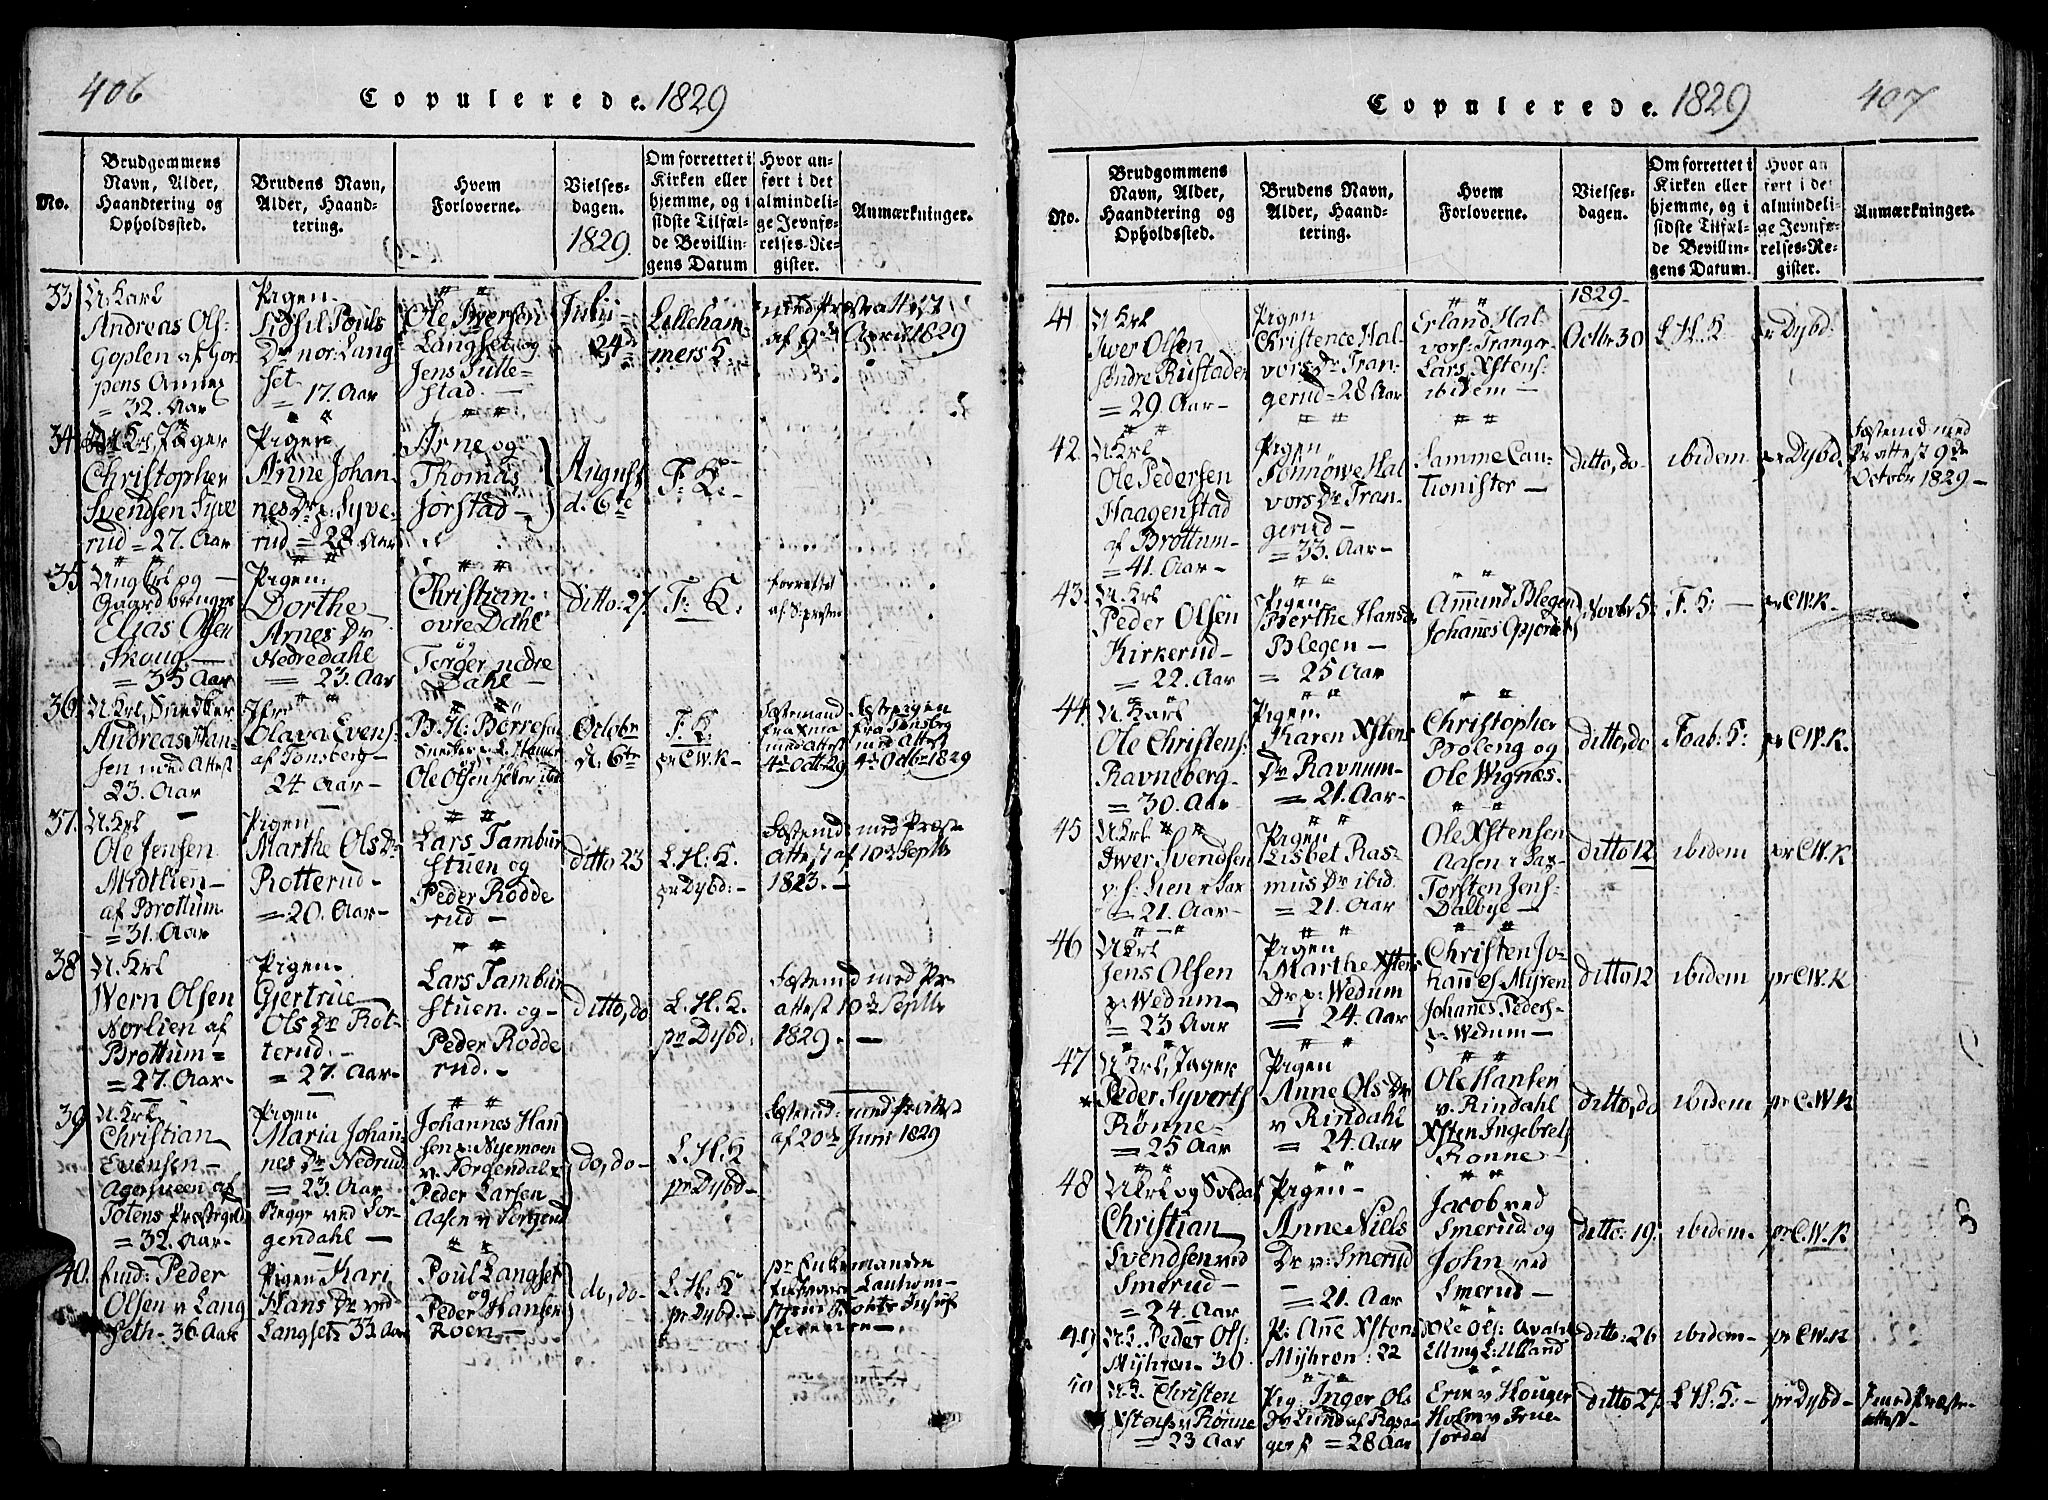 406
Copulerede. 1829
No.
Brudgommens
Navn, Alder,
Haandtering og
Opholdssted.
Brudens Navn,
Alder, Haand-
tering.
Hvem
Forloverne.
Vielses-
dagen.
1829.
Om forrettet i
Kirken eller
hjemme, og i
sidste Tilfæl-
de Bevillin-
gens Datum
Hvor an-
ført i det
almindeli-
ge Jevnfø-
relses-Re-
gister.
Anmærkninger.
33
U. Karl
Andreas Ols-
Goplen af
= 32. Aar
Pigen
Poüls
Dr nor. Lang
set
= 17. Aar
Ole Iversen
Langset og
Jens
stad. —
Julii
24de
Lilleham-
mers K.
af 9de April 1829
34
Krl, Jæger
Christopher
Svendsen Syve
rud = 27. Aar
Pigen
Anne Johan
nes Dr p: Syve
rud = 28 Aar
Arne og
Thomas
Jørstad —
August
d. 6te
F. K. —
35
Ung Krl og —
Gaardbruger
Elias Olsen
Skoug. —
= 35 Aar
Pigen
Dorthe
Arnes Dr
Nedredahl
= 23. Aar
Christian
ovre Dahl
og
Torger nedre
Dahl —
Ditto 27.
F. K.
forrettet
af
36
U. Krl, Snedker
Andreas Han-
sen med Attest
23. Aar
Olava Evens:
af Tønsberg —
24 Aar —
B. H. Børresen
Ole Olsen
Octobr
d. 6te
F. K.
pr C.W.K —
med Attest
4de Octbr 29
fra Tønsberg
med Attest
4de Octbr 1829
37.
U. Krl
Ole Jensen
Midtlien —
af Brottum
= 31. Aar
Pigen
Marthe Ols Dr
Rotterud —
= 20. Aar —
Lars Tambur
stuen og
Peder Rodde
rud —
ditto 23
L. H. K.
pr Dybd: —
med Præste
Attest af 18de Septbr
1823. —
38
U. Krl
Wern Olsen
Norlien af
Brottum =
= 27. Aar —
Pigen
Gjertrue
Ols Dr Rot-
terud. —
= 27. Aar —
Lars Tambur
stuen. og —
Peder Rodde
rud. —
ditto, do
L. H. K.
pr Dybd:
med Pr
attest 18de Septbr
1829. —
39
U. Krl
Christian
Evensen —
af
Totens Præstegield
= 32. Aar —
Pigen
Maria Johan
nes Dr Nedrud
= 23. Aar
Begge ved Jor-
gendahl —
Johannes Han
sen
v. Jorgendal &
Peder Larsen
Aasen v Jorgend
do, do —
L. H. K
pr Dybd —
med Pr attest
af 20de Juni 1829
40.
Peder
Olsen v Lang
seth - 36 Aar
Pigen Kari
Hans Dr ved
Langset 33 Aar
Poul Langset
og
Peder Hansen
Roen —
do, do —
L. H. K
pr Dybd. —
pr Enkemands
407
Copulerede. 1829
No.
Brudgommens
Navn, Alder,
Haandtering og
Opholdssted.
Brudens Navn,
Alder, Haand-
tering.
Hvem
Forloverne.
Vielses-
dagen.
Om forrettet i
Kirken eller
hjemme, og i
sidste Tilfæl-
de Bevillin-
gens Datum.
Hvor an
ført i det
almindeli-
ge Jevnfø-
relses-Re-
gister.
Anmærkninger.
1829
41
U Krl
Iwer Olsen
søndre Rustaden
= 29. Aar —
Pigen
Christence Hal
vors Dr Tran-
gerud - 28 Aar
Erland Hal-
vors: Tranger
Lars Xstens:
ibidem —
Octbr 30
L H. K
pr Dybd
42
U Krl
Ole Pedersen
Haagenstad
af Brottum —
= 41. Aar —
Pigen
Sønnøwe Hal
vors Dr Tran-
gerud —
= 33. Aar —
Samme Cau-
tionister —
ditto, do
ibidem
pr Dybd
med
Pr attest 9de
Octobr 1829 —
43.
U. Krl
Peder Olsen
Kirkerud —
= 22. Aar
Pigen
Berthe Hans Dr
Blegen —
= 25 Aar
Amund Blegen
Johanes Gjordet
Novbr 5:
F. K: —
pr C.W.K.
44
U. Karl
Ole Christens:
Ravneberg —
= 30. Aar
Pigen
Karen Xstens
Dr Ravnum —
= 21. Aar —
Christopher
Proleng og
Ole Wignes.
ditto, do
Foab: K:
pr C.W.K.
45
U Krl
Iwer Svendsen
= 21. Aar —
Pigen
Lisbet Ras-
mus Dr ibid
= 21. Aar
Ole Xstensen
Aasen
Torsten Jens:
Dalbye —
ditto 12
ibidem
pr C.W.K
46
U Krl
Jens Olsen
p: Wedum —
= 23 Aar
Pigen
Marthe Xstens
Dr p: Wedum
= 24. Aar
Christen Jo-
hannes Myren
Johanes Peders:
p: Wedum —
ditto 12
ibidem
pr C.W.K
47
U. Krl, Jager
Peder Syverts
Rønne —
= 25 Aar
Pigen
Anne Ols Dr
v Rindahl
= 24. Aar
Ole Hansen
v. Rindahl
Xsten Ingebrets
Ronne —
ditto, do
ibidem
pr C.W.K
48
U Krl og Soldat
Christian
Svendsen ved
Smerud —
= 24. Aar
Pigen —
Anne Niels
Dr v: Smerud
= 21. Aar
Jacob ved
Smerud og
John ved
Smerud —
ditto: 19.
ibidem —
pr C.W.K
49
U. K. Peder Ols:
Myhren. 30
P: Anne Xstens
Myhren: 22
Ole Ols:
ditto: 26
ibidem —
pr C.W.K
50
U. K. Christen
Xstens v Rønne
= 23 Aar
Pig: Inger Ols
Dr Lund af
= 28 Aar
Houger
Holm v
ditto 27.
L H: K: —
pr Dybd —
med Præste
attest —